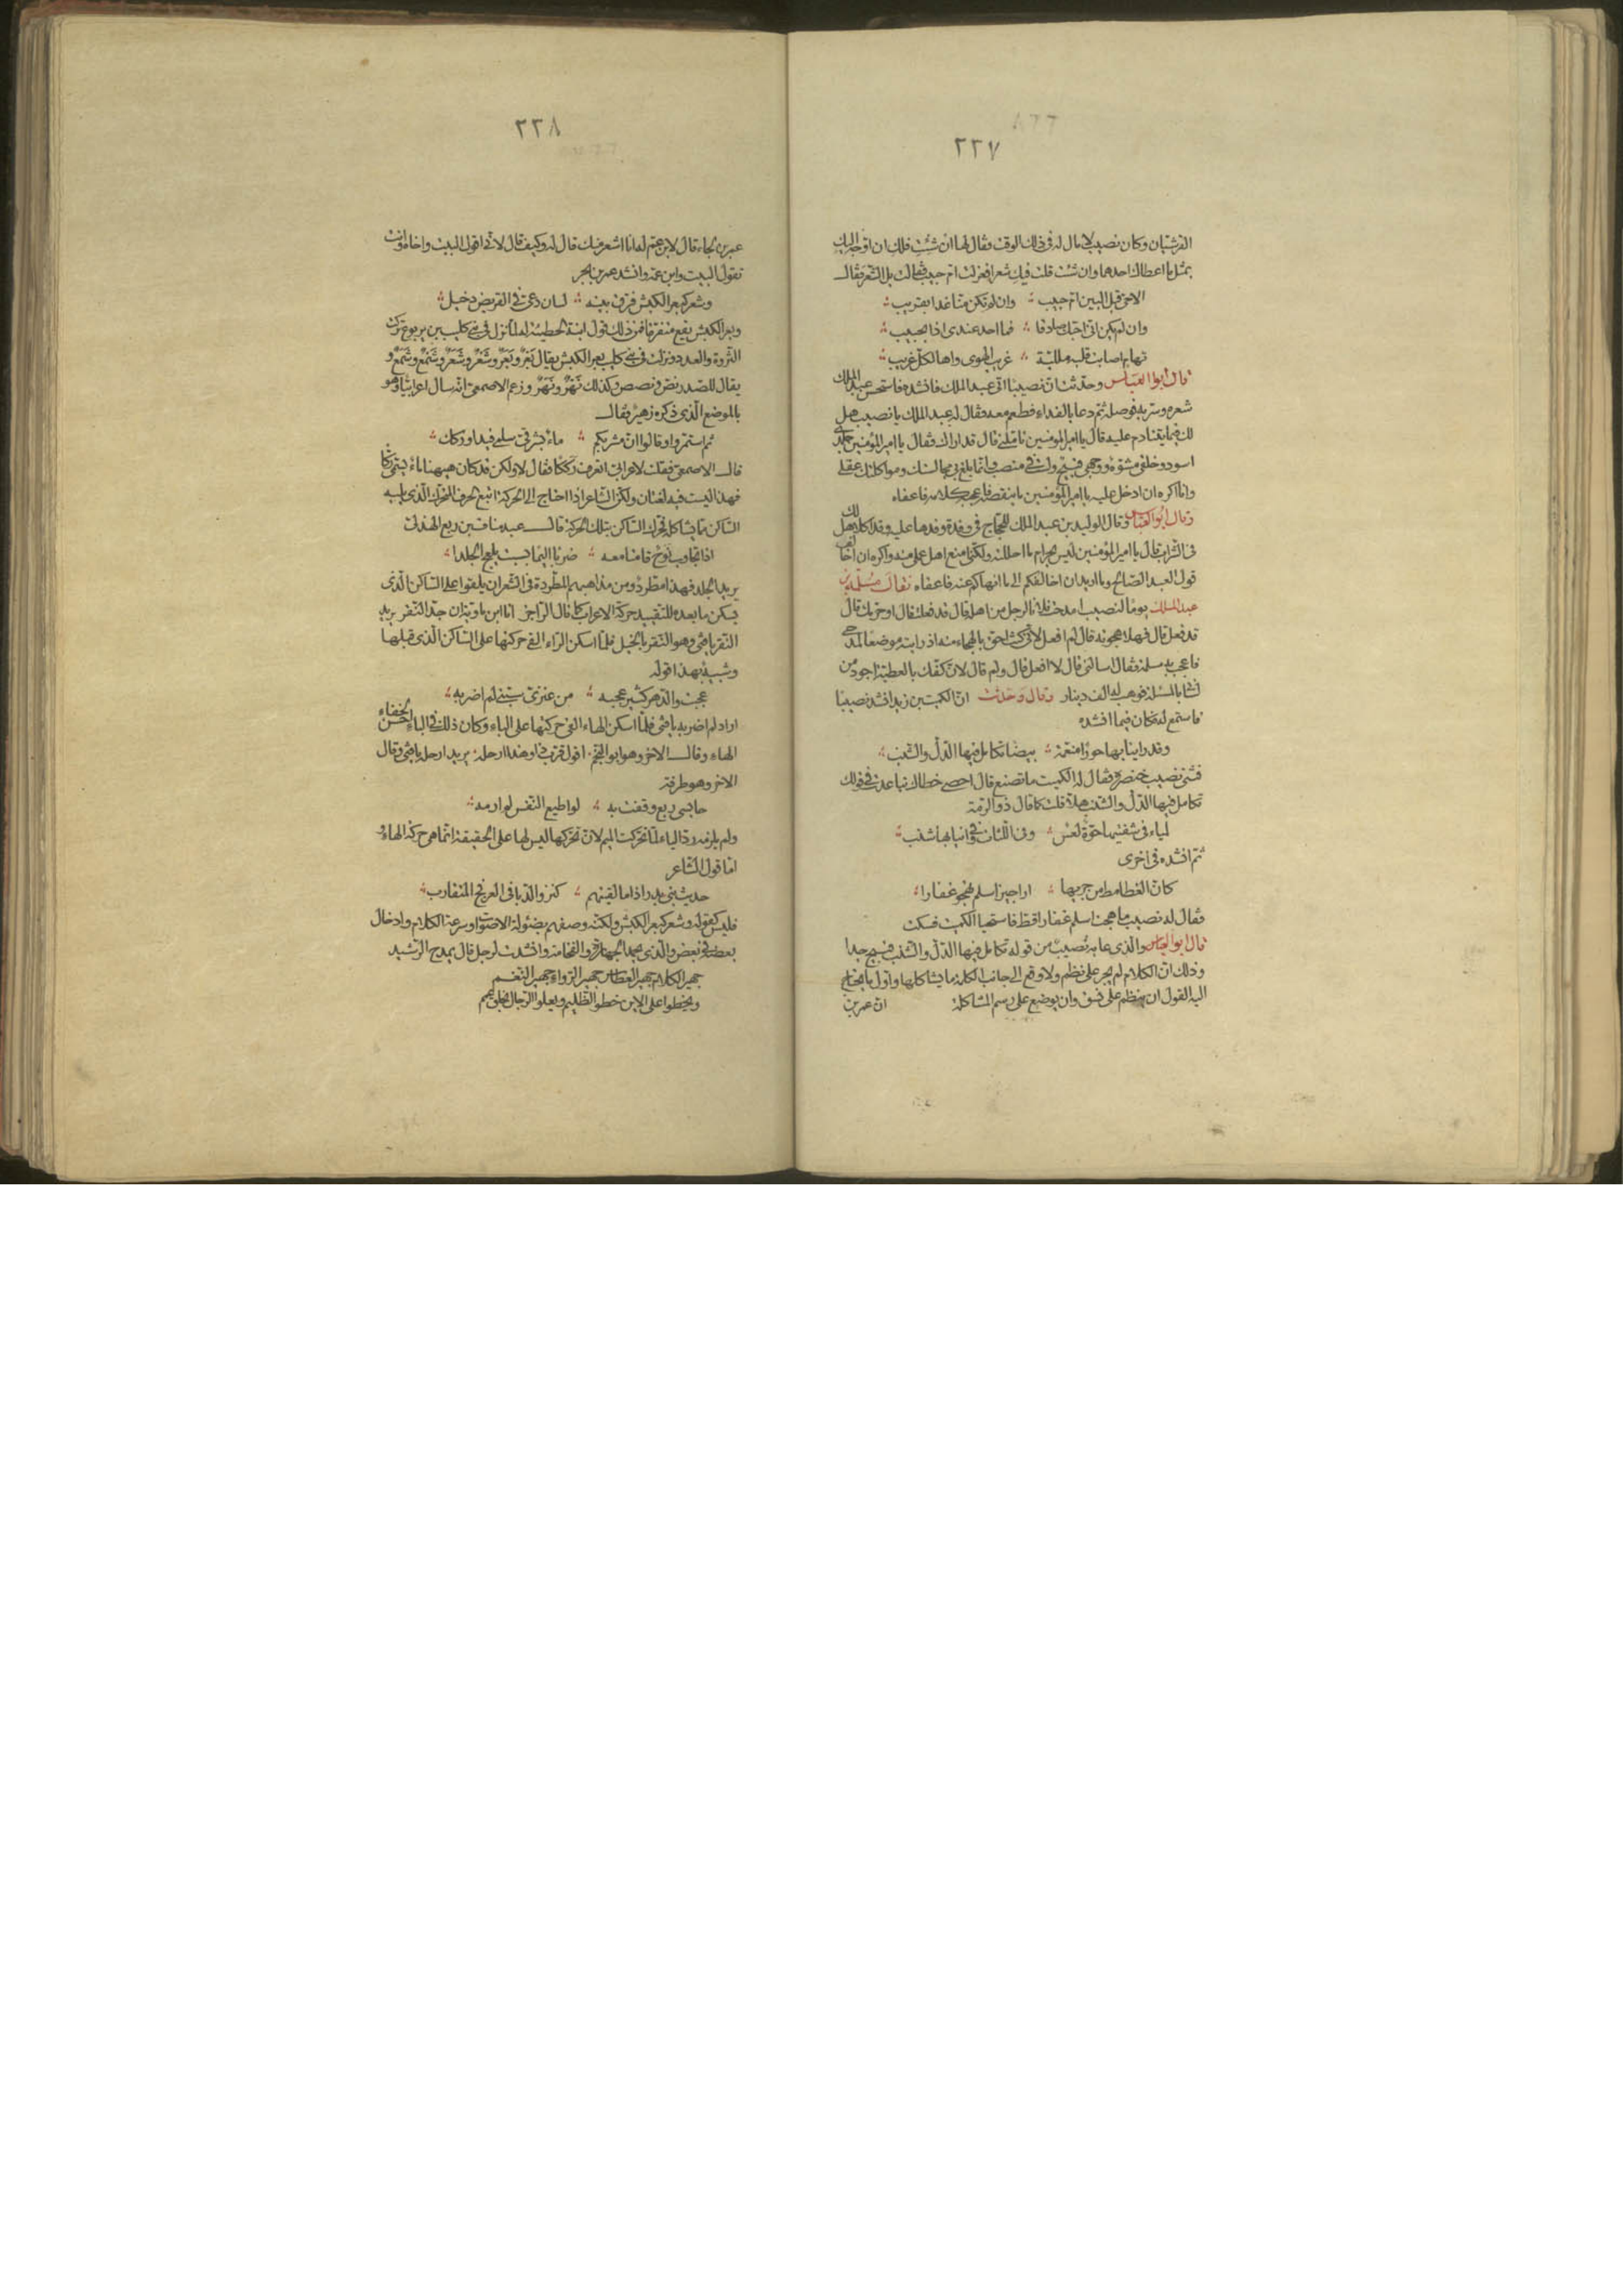 ٢٢٧
القرشيان وكان نصيب لا مال له في ذلك الوقت فقال لها ان شئت فلك ان اوجه اليك
بمثل ما اعطاك احدهما وان شئت قلت فيك شعرا فقالت بل الشعر فقال
الاحي قبل البين ام حبيب وان لم تكن منا غدا بقريب
وان لم يكن اني احبك صادقا فما احد عندي اذا بحبيب
تهام اصابت قلبه مللية غريب الهوى واها لكل غريب
قال ابو العباس وحدثت ان نصيبا اتى عبد الملك فانشده فاستحسن عبد الملك
شعره وسر به فوصله ثم دعا بالغداء فطعم معه فقال له عبد الملك يا نصيب هل
لك فيما يتنادم عليه قال يا امير المؤمنين تاملني قال قد اراك فقال يا امير المؤمنين جلدي
اسود وخلقي مشوه ووجهي قبيح ولست في منصب وانما بلغ بي مجالستك ومواكلتك عقلي
وانا اكره ان ادخل عليه يا امير المؤمنين ما ينقصه فاعجبه كلامه فاعفاه
وقال ابو العباس وقال الوليد بن عبد الملك للحجاج في وفدة وفدها عليه وقد اكلا هل لك
في الشراب قال يا امير المؤمنين ليس بحرام ما احللت ولكني امنع اهل عملي منه واكره ان اخالف
قول العبد الصالح وما اريد ان اخالفكم الى ما انهاكم عنه فاعفاه وقال مسلمة بن
عبد الملك يوما لنصيب امدحت فلانا لرجل من اهله قال قد فعلت قال او حرمك قال
قد فعل قال فهلا هجوته قال لم افعل لاني كنت احق بالهجاء منه اذ رايته موضعا لمدحي
فاعجب به مسلمة فقال اسالني قال لا افعل قال ولم قال لان كفك بالعطية اجود من
لساني بالمسئلة فوهب له الف دينار وقال وحدثت ان الكميت بن زيد انشد نصيبا
فاستمع له فكان فيما انشده
وقد راينا بها حورا منعمة بيضا تكامل فيها الدل والشنب
فثنى نصيب خنصره فقال له الكميت ما تصنع قال احصي خطاك تباعدت في قولك
تكامل فيها الدل والشنب هلا قلت كما قال ذو الرمة
لمياء في شفتيها حوة لعس وفي اللثات وفي انيابها شنب
ثم انشده في اخرى
كان الغطامط من جريها اراجيز اسلم تهجو غفارا
فقال له نصيب ما هجت اسلم غفارا قط فاستحيا الكميت فسكت
قال ابو العباس والذي عابه نصيب من قوله تكامل فيها الدل والشنب قبيح جدا
وذلك ان الكلام لم يجر على نظم ولا وقع الى جانب الكلمة ما يشاكلها واول ما يحتاج
اليه القول ان ينظم على نسق وان يوضع على رسم المشاكلة ان عمر بن
٢٢٨
عمر بن لجاء قال لابن عم له انا اشعر منك قال له وكيف قال لاني اقول البيت واخاه وانت
تقول البيت وابن عمه وانشد عمر بن بحر
وشعر كبعر الكبش فرق بينه لسان دعي في القريض دخيل
وبعر الكبش يقع متفرقا فمن ذلك قول ابنة الحطيئة له لما نزل في بني كليب بن يربوع تركت
الثروة والعدد ونزلت في بني كليب بعر الكبش يقال بعر وبعر وشعر وشعر وشمع وشمع و
يقال للصدر قص وقصص وكذلك نهر ونهر وزعم الاصمعي انه سال اعرابيا وهو
بالموضع الذي ذكره زهير فقال
ثم استمروا وقالوا ان مشربكم ماء بشرقي سلمى فيد او ركك
قال الاصمعي فقلت لاعرابي اتعرف رككا فقال لا ولكن قد كان ههنا ماء يسمى ركا
فهذا ليست فيه لغتان ولكن الشاعر اذا احتاج الى الحركة اتبع الحرف المتحرك الذي يليه
الساكن ما يشاكله فحرك الساكن بتلك الحركة قال عبد مناف بن ربع الهذلي
اذا تجاوب نوح قامتا معه ضربا اليما بسبت يلعج الجلدا
يريد الجلد فهذا مطرد ومن مذاهبهم المطردة في الشعر ان يلقوا على الساكن الذي
يسكن ما بعده للتقييد حركة الاعراب كما قال الراجز انا ابن ماوية اذ جد النقر يريد
النقر يا فتى وهو النقر بالخيل فلما اسكن الراء القى حركتها على الساكن الذي قبلها
وشبيه بهذا قوله
عجبت والدهر كثير عجبه من عنزي سبني لم اضربه
اراد لم اضربه يا فتى فلما اسكن الهاء القى حركتها على الباء وكان ذلك في الباء احسن لخفاء
الهاء وقال الاخر وهو ابو النجم اقول قرب ذا وهذا ازحله يريد ازحله يا فتى وقال
الاخر وهو طرفة
حابسي ربع وقفت به لو اطيع النفس لم ارمه
ولم يلزمه رد الياء لما تحركت الميم لان تحركها ليس لها على الحقيقة انما هي حركة الهاء و
اما قول الشاعر
حديث بني بدر اذا ما لقيتهم كنزو الدبا في العرفج المتقارب
فليس كقوله وشعر كبعر الكبش ولكنه وصفهم بضئولة الاصوات وسرعة الكلام وادخال
بعضه في بعض والذي يحمد الجهارة والفخامة وانشدت لرجل قال يمدح الرشيد
جهير الكلام جهير العطاس جهير الرواء جهير النغم
ويخطو على الاين خطو الظليم ويعلو الرجال بخلق عمم